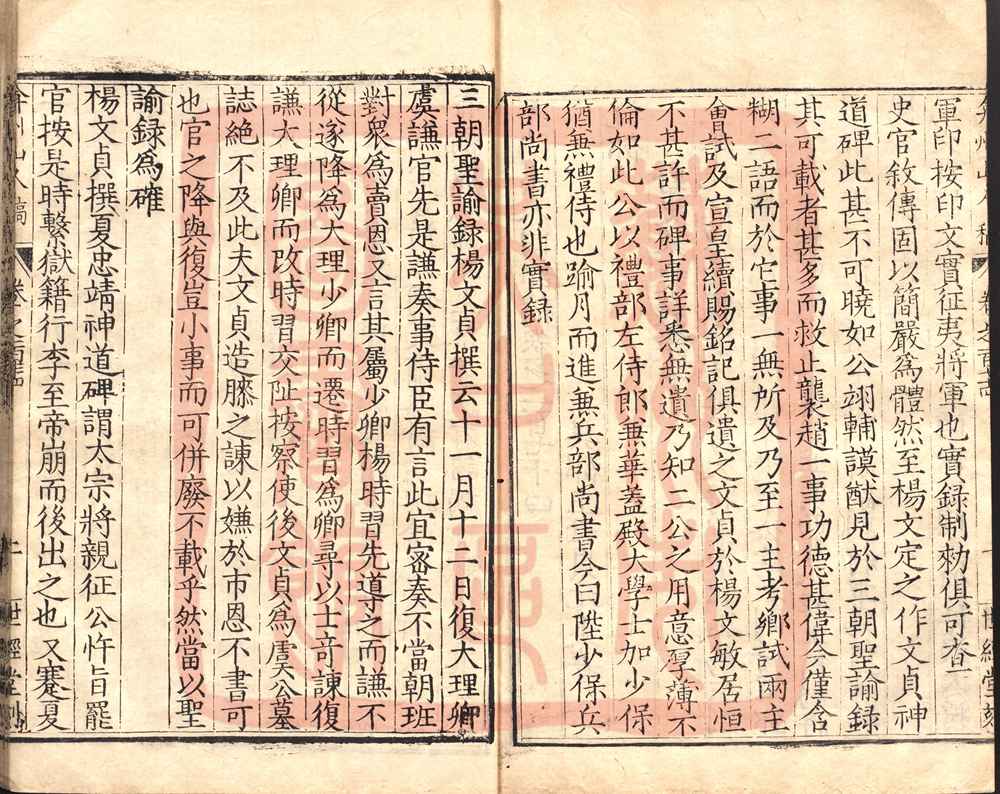 軍印按印文實征夷將軍也實録制勑俱可查
史官敘傳固以簡嚴爲體然至楊文定之作文貞神
道碑此甚不可曉如公翊輔謨猷見於三朝聖諭録
其可載者甚多而救止襲趙一事功德甚偉今僅含
糊二語而於它事一無所及乃至一主考鄉試兩主
會試及宣皇續賜銘記俱遺之文貞於楊文敏居恒
不甚許而碑事詳悉無遺乃知二公之用意厚薄不
倫如此公以禮部左侍郎兼華蓋殿大學士加少保
猶無禮侍也踰月而進兼兵部尚書今曰陞少保兵
部尚書亦非實録
三朝聖諭録楊文貞撰云十一月十二日復大理卿
虞謙官先是謙奏事侍臣有言此宜密奏不當朝班
對衆爲賣恩又言其屬少卿楊時習先道之而謙不
從遂降爲大理少卿而遷時習爲卿尋以士竒諫復
謙大理卿而改時習交阯按察使後文貞爲虞公墓
誌絶不及此夫文貞造膝之諫以嫌於市恩不書可
也官之降與復豈小事而可併廢不載乎然當以聖
諭録爲確
楊文貞撰夏忠靖神道碑謂太宗將親征公忤旨罷
官按是時繫獄籍行李至帝崩而後出之也又蹇夏
世經堂刻